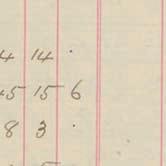 4 14 .
45 15 6
8 3